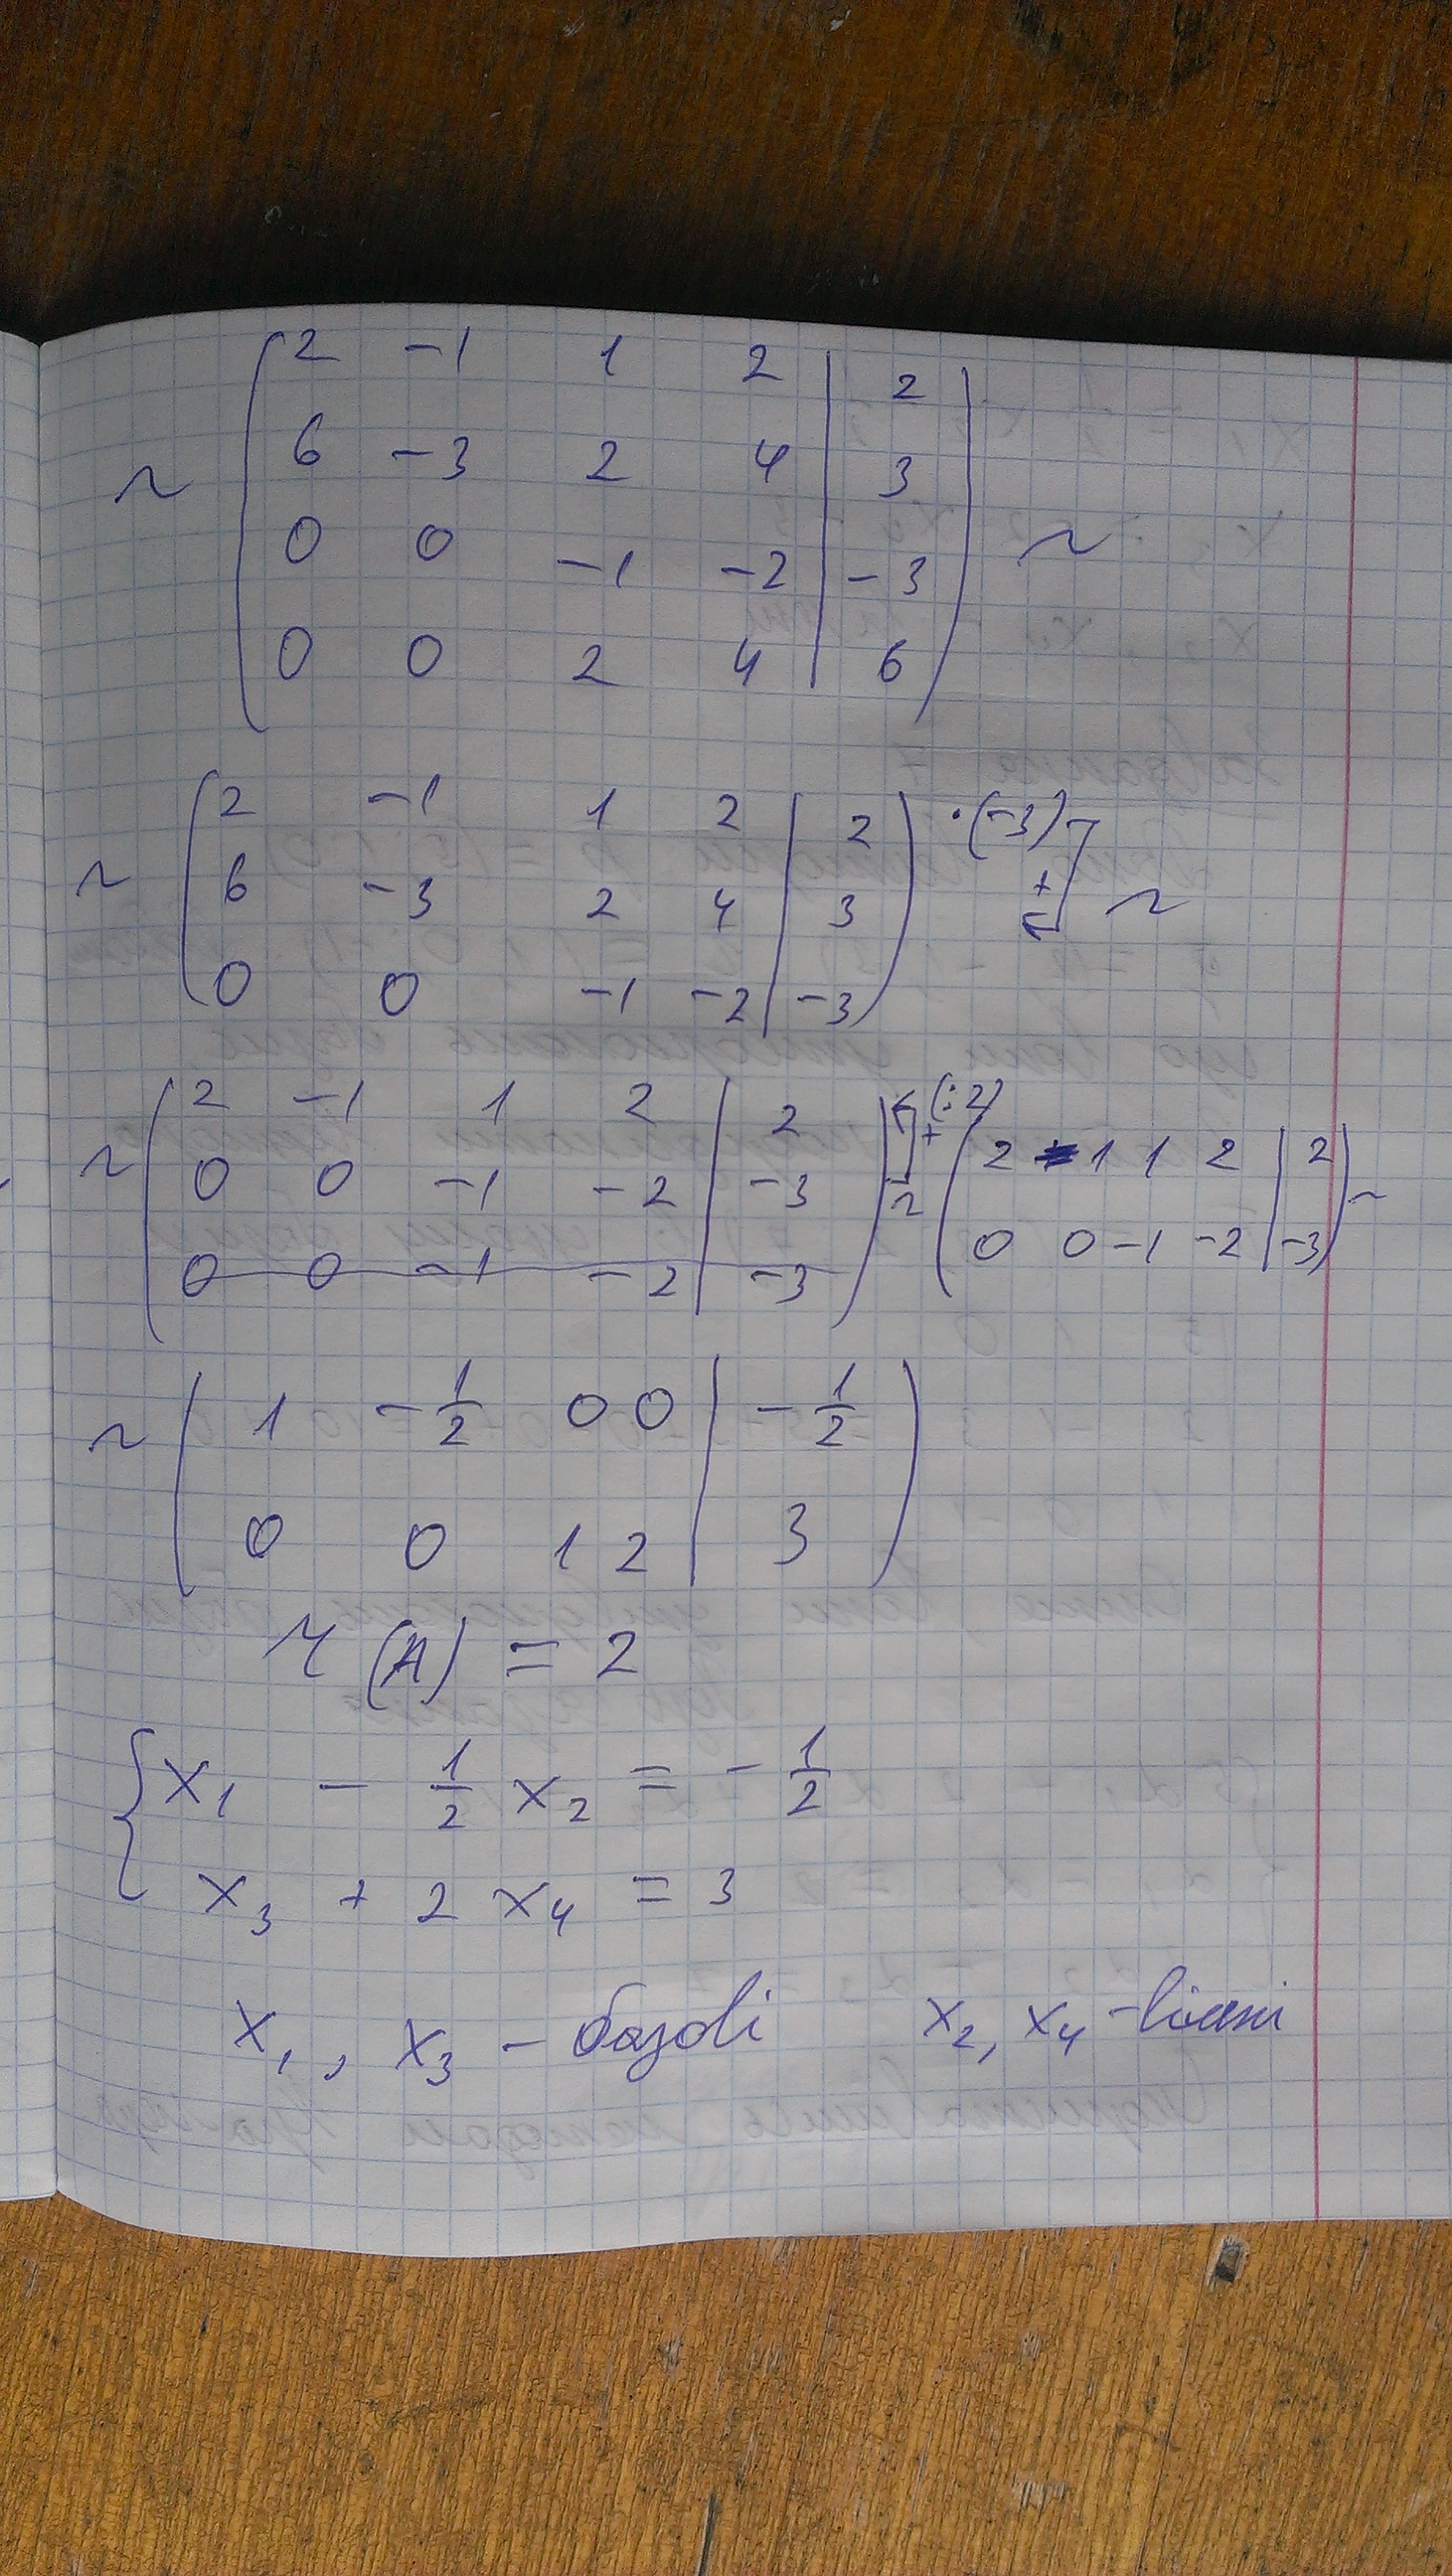 2 -1 1 2 | 2
~ 6 -3 2 4 | 3 ~
0 0 -1 -2 | -3
0 0 2 4 | 6
2 -1 1 2 | 2 ·(-3)
~ 6 -3 2 4 | 3 + ~
0 0 -1 -2 | -3
2 -1 1 2 | 2 + (:2)
~ 0 0 -1 -2 | -3 ~
0 0 -1 -2 | -3
2 -1 1 2 | 2
0 0 -1 -2 | -3 ~
~ 1 -1/2 0 0 | -1/2
0 0 1 2 | 3
r(A) = 2
{ x₁ - 1/2 x₂ = - 1/2
x₃ + 2 x₄ = 3
x₁, x₃ - базові x₂, x₄ - вільні